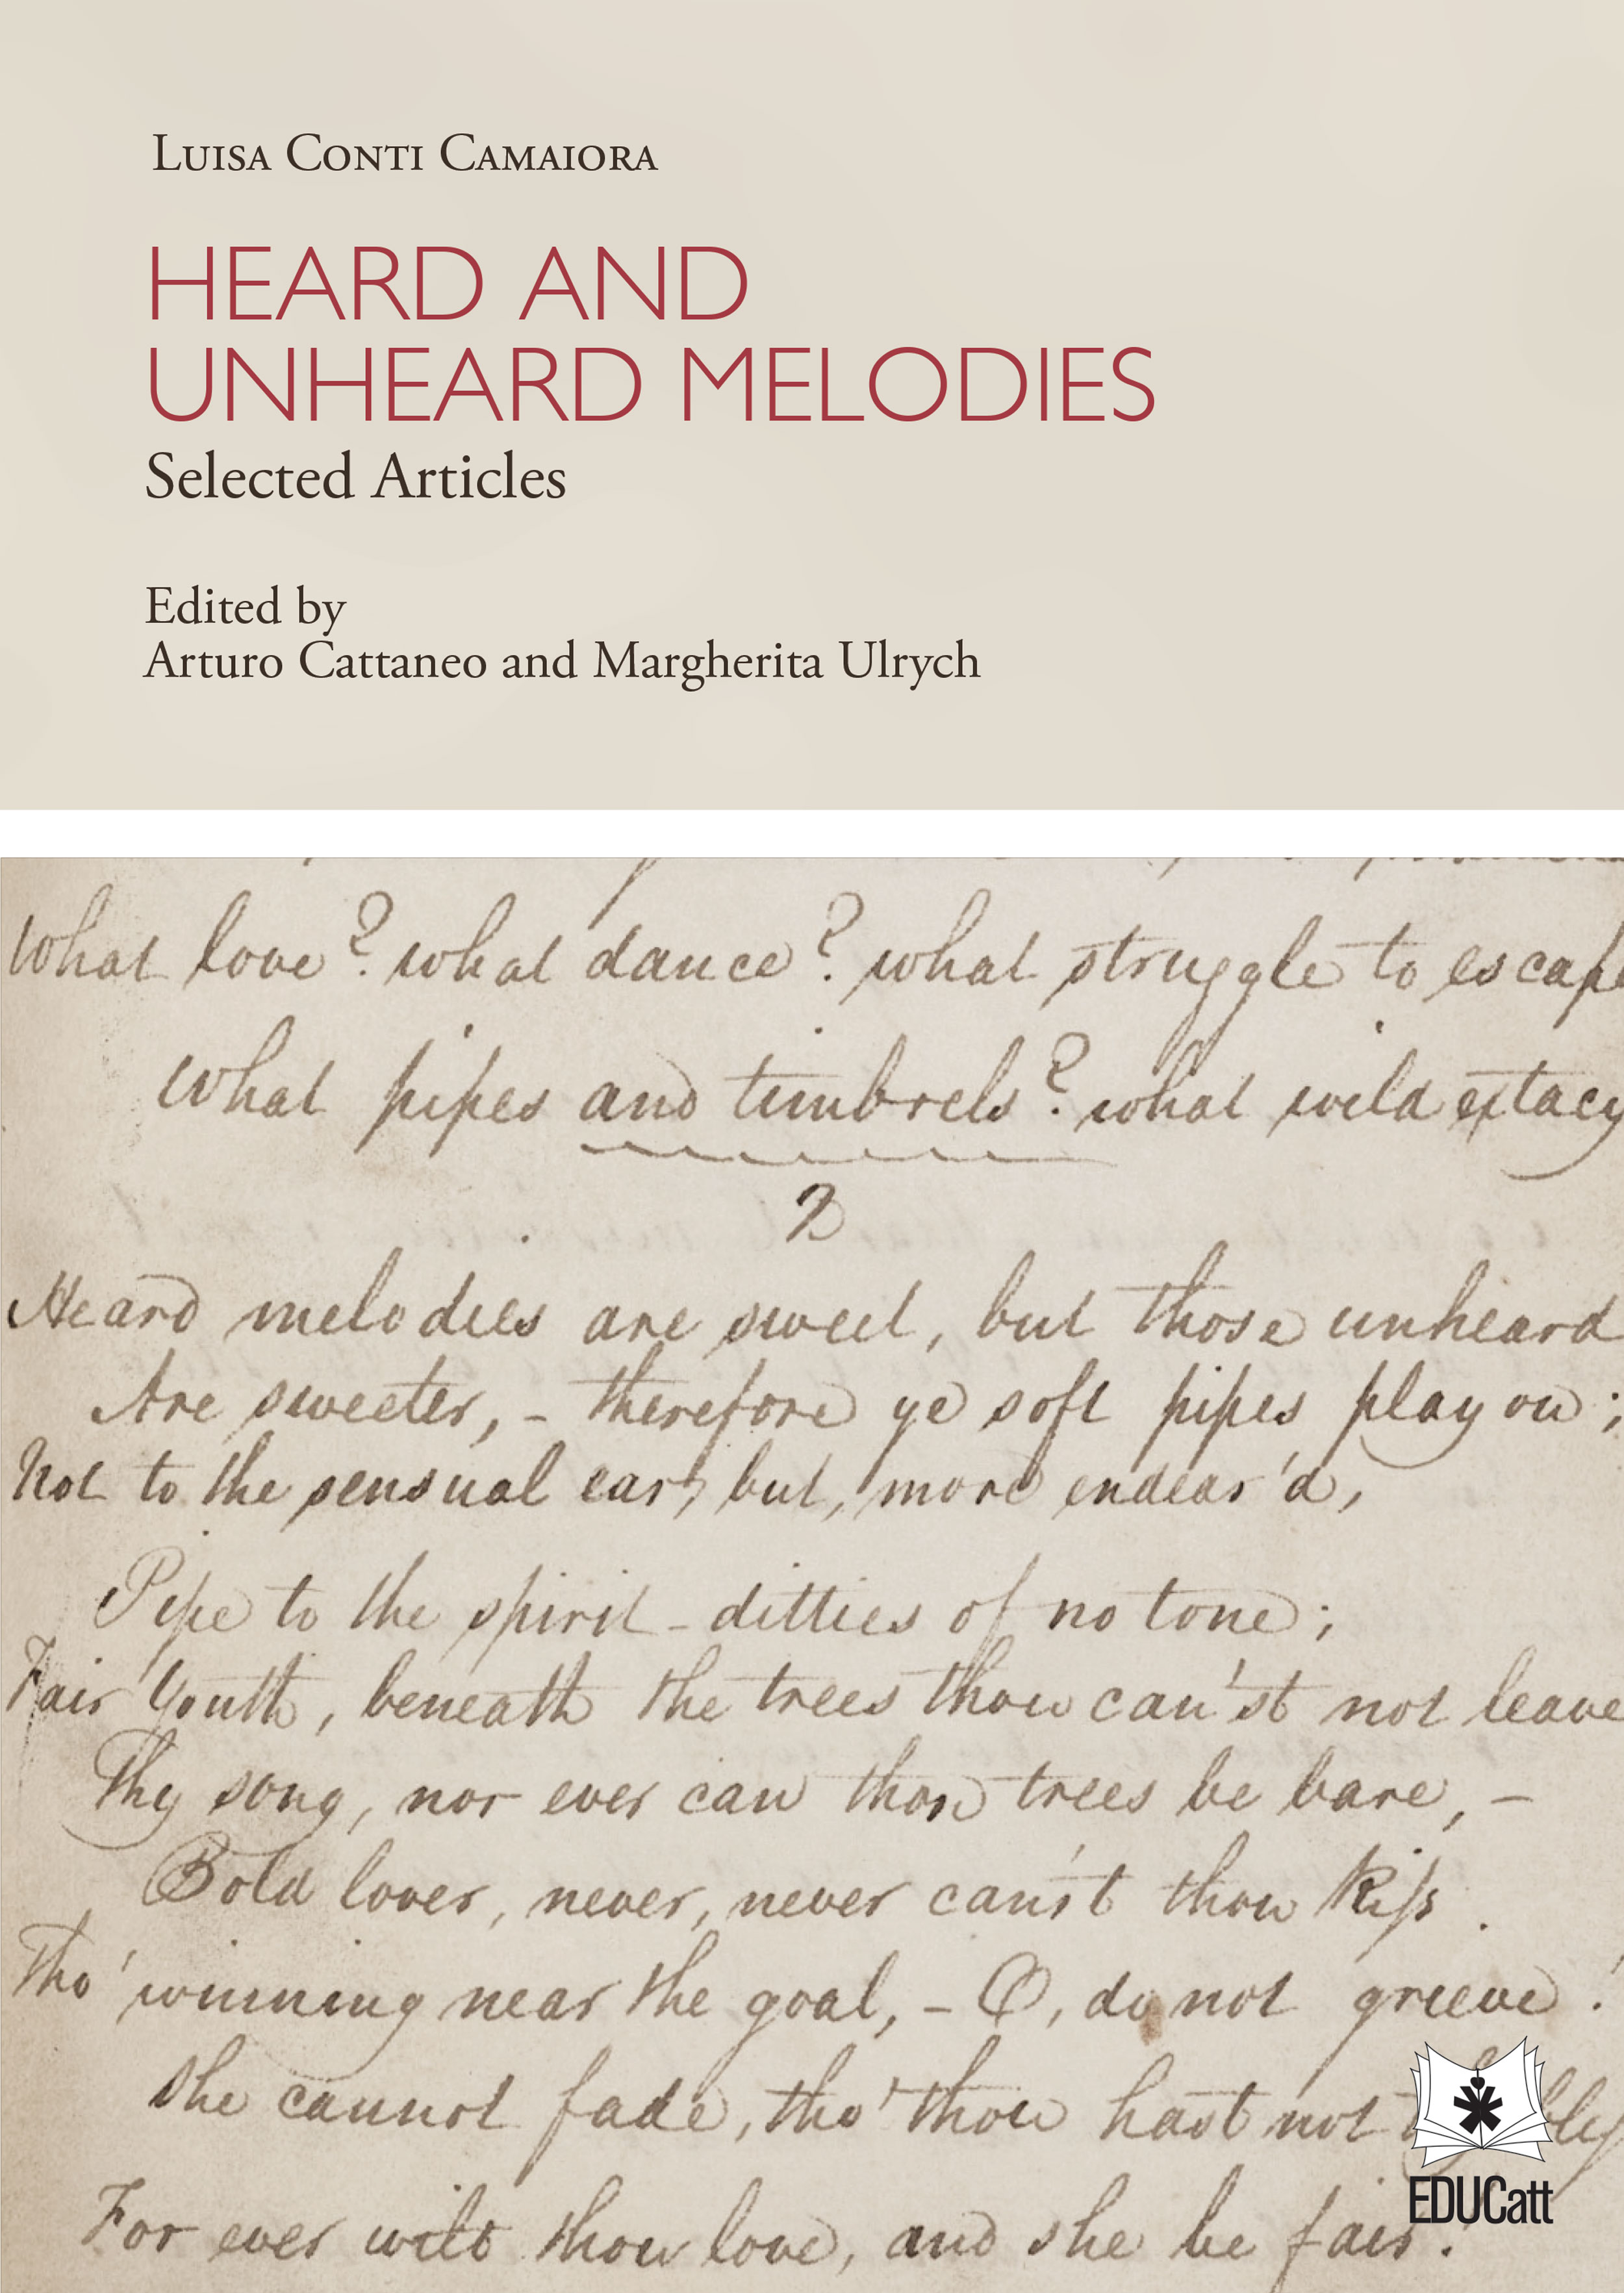 LUISA CONTI CAMAIORA
HEARD AND
UNHEARD MELODIES
Selected Articles
Edited by
Arturo Cattaneo and Margherita Ulrych
What love? what dance? what struggle to escape
What pipes and timbrels? what wild extacy
2
Heard melodies are sweet, but those unheard
Are sweeter, - therefore ye soft pipes play on;
Not to the sensual ear, but, more endear'd,
Pipe to the spirit - ditties of no tone;
Fair Youth, beneath the trees thou can'st not leave
Thy song, nor ever can those trees be bare, -
Bold lover, never, never can'st thou kiss
Tho' winning near the goal, - O, do not grieve!
She cannot fade, tho' thou hast not
For ever wilt thou love, and she be fair.
EDUCatt